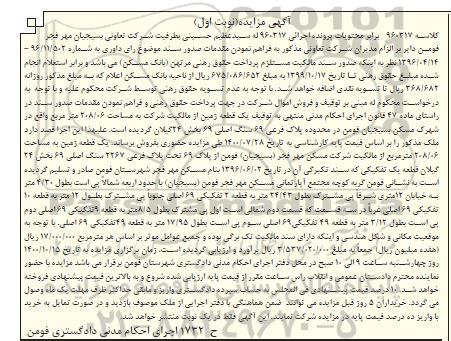 آگهی مزایده(نوبت اول)
کلاسه ۹۶۰۳۱۷ برابر محتویات پرونده اجرائی ۹۶۰۳۱۷ له سیدعظیم حسینی بطرفیت شرکت تعاونی بسیجیان مهر فجر
فومن دایر بر الزام مدیران شرکت تعاونی مذکور به فراهم نمودن مقدمات صدور سند موضوع رای داوری به شماره ۹۶/۱۱/۵۰۲ –
۱۳۹۶/۰۴/۱۴ نظر به اینکه صدور سند مالکیت مستلزم پرداخت حقوق رهنی مرتهن (بانک مسکن) می باشد و برابر استعلام انجام
شده مبلغ حقوق رهنی تا تاریخ ۱۳۹۹/۱۰/۱۷ به مبلغ ۶۷۵/۰۸۶/۶۵۲ ریال از ناحیه بانک مسکن اعلام که به مبلغ مذکور روزانه
۳۶۸/۶۸۲ ریال تا تسویه نقدی اضافه خواهد شد. با توجه به عدم تسویه حقوق رهنی توسط شرکت محکوم علیه و با توجه به
درخواست محکوم له مبنی بر توقیف و فروش اموال شرکت در جهت پرداخت حقوق رهنی و فراهم نمودن مقدمات صدور سند در
راستای ماده ۴۷ قانون اجرای احکام مدنی منتهی به توقیف یک قطعه زمین از مالکیت شرکت به مساحت ۲۰۸/۰۶ متر مربع واقع در
شهرک مسکن بسیجیان فومن در محدوده پلاک فرعی ۶۹ سنگ اصلی ۶۹ بخش ۲۴گیلان گردیده است. علیهذا این اجرا قصد دارد
ملک مذکور را بر اساس قیمت پایه کارشناسی به تاریخ ۱۴۰۰/۰۷/۲۸ طی مزایده حضوری بفروش برساند. یک قطعه زمین به مساحت
۲۰۸/۰۶ مترمربع از مالکیت شرکت مسکن مهر فجر (بسیجیان) فومن از پلاک ۶۹ تحت پلاک فرعی ۲۲۶۷ سنگ اصلی ۶۹ بخش ۲۴
گیلان قطعه یک تفکیکی که سند تکبرگی آن در تاریخ ۱۳۹۶/۰۶/۰۲ بنام مسکن مهر فجر شهرستان فومن صادر و تسلیم گردیده
است به نشانی فومن گربه کوچه مجتمع آپارتمانی مسکن مهر فجر فومن (بسیجیان) با حدود اربعه شمالا پی است بطول ۴/۳۰ متر
به خیابان ۱۲متری شرقا پی مشترک بطول ۲۴/۴۳ متر به قطعه ۲ تفکیکی ۶۹ اصلی جنوبا پی مشترک بطول ۱۲ متر به قطعه ۱۰
تفکیکی ۶۹ اصلی غربا در سه قسمت که قسمت دوم شمالی است اول پی مشترک بطول ۸/۵متر به قطعه ۹تفکیکی ۶۹ اصلی دوم
پی است بطول ۳/۱۲ متر به قطعه ۴۹ تفکیکی ۶۹ اصلی سوم پی است بطول ۱۷/۹۵ متر به قطعه ۴۹تفکیکی ۶۹ اصلی. با توجه به
موقعیت مکانی و شکل هندسی و اینکه دارای سند مالکیت تک برگی بوده و جمیع عوامل موثر بر اساس هر مترمربع ۱۷/۰۰۰/۰۰۰ ریال
(هفده میلیون ریال) جمعا به مبلغ ۳/۵۳۷/۰۲۰/۰۰۰ ریال برآورد و ارزیابی گردیده است. زمان برگزاری مزایده به تاریخ ۱۴۰۰/۱۰/۱۵
روز چهارشنبه ساعت ۹ الی ۱۰ صبح در محل دفتر اجرای احکام مدنی دادگستری شهرستان فومن برقرار می باشد مزایده با حضور
نماینده محترم دادستان عمومی و انقلاب راس ساعت مقرر از قیمت پایه ارزیابی شده شروع و به بالاترین قیمت پیشنهادی فروخته
خواهد شد. ۱۰ درصد قیمت پیشنهادی فی المجلس به حساب سپرده دادگستری واریز و مابقی حداکثر ظرف مهلت یک ماه وصول
می گردد. خریداران ۵ روز قبل مزایده می توانند ضمن هماهنگی با دفتر اجرایی از ملک موصوف بازدید و در صورت تمایل به خرید
با واریز ده درصد قیمت پایه در مزایده شرکت نمایند. این آگهی فقط در یک نوبت منتشر خواهد شد.
ح ۱۷۳۲ اجرای احکام مدنی دادگستری فومن